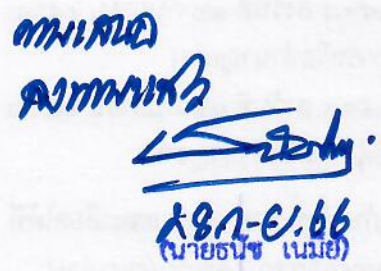 ตามเสนอ
ลงนามแล้ว
28 ก.ย. 66
(นายธนัช เนมีย์)